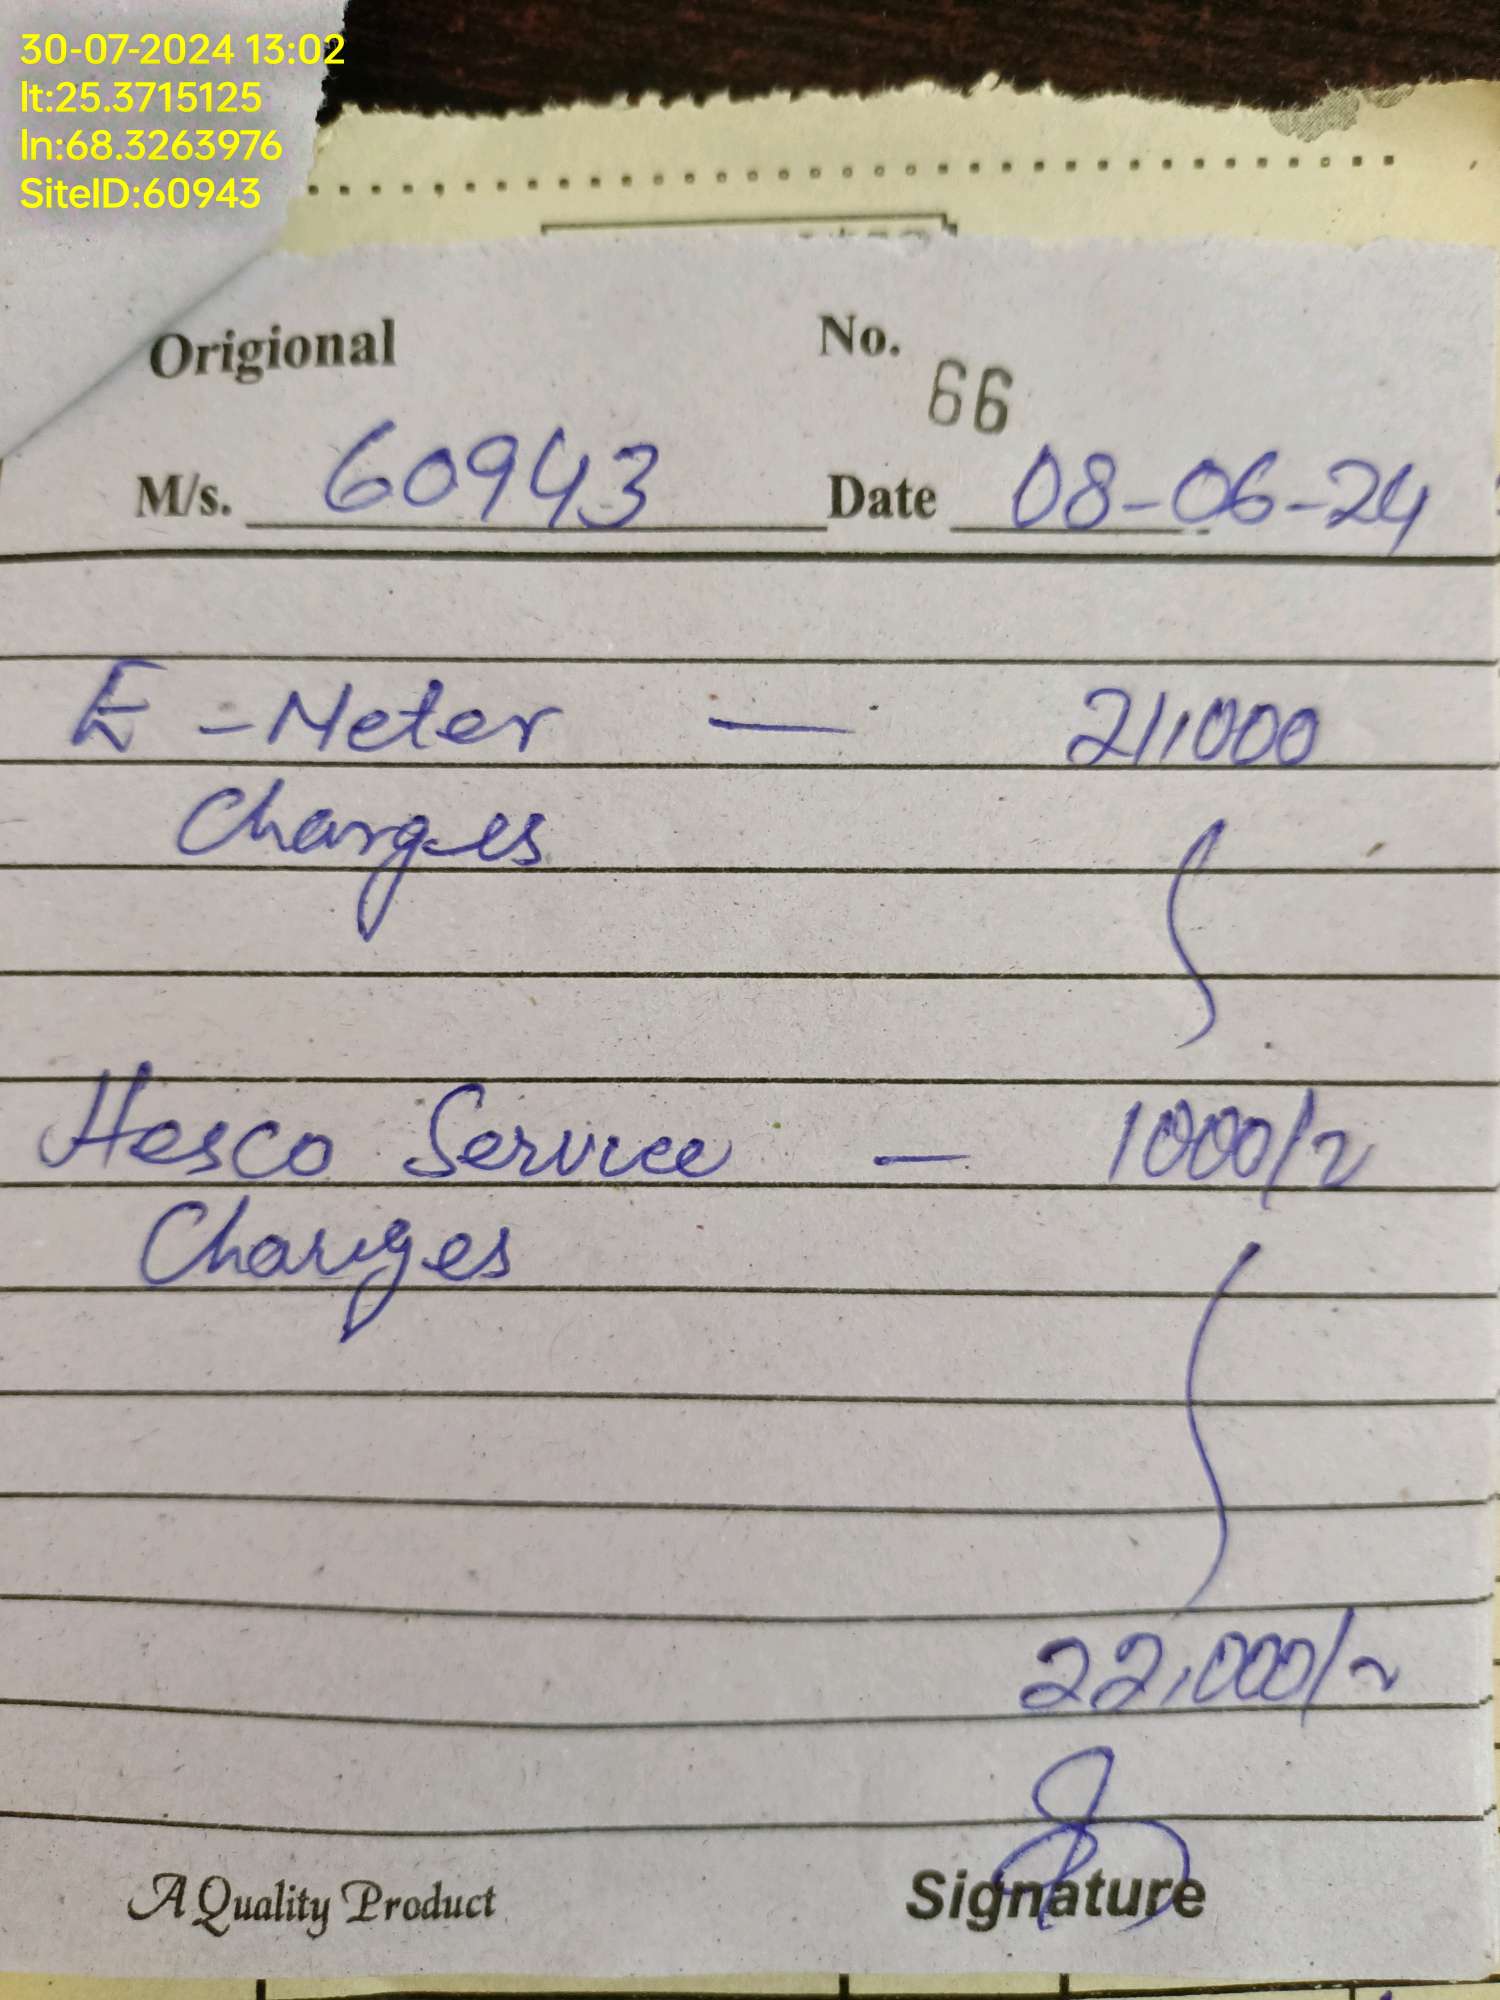 30-07-2024 13:02
lt:25.3715125
ln:68.3263976
SiteID:60943
Origional No. 66
M/s. 60943 Date 08-06-24
E-Meter — 21,000
Charges
Hesco Service — 1000/-
Charges
22,000/-
A Quality Product Signature